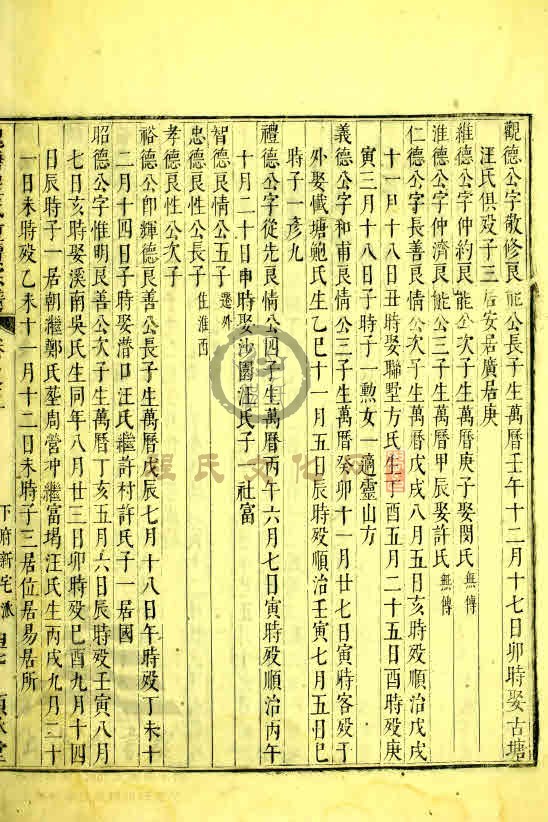 觀德公字敬修良能公長子生萬曆壬午十二月十七日卯時娶古塘
汪氏俱殁子三居安居廣居庚
維德公字仲約良能公次子生萬曆庚子娶閔氏無傳
淮德公字仲濟良能公三子生萬曆甲辰娶許氏無傳
仁德公字長善良情公次子生萬曆戊戌八月五日亥時殁順治戊戌
十一月十八日丑時娶聯墅方氏生酉五月二十五日酉時殁庚
寅三月十八日子時子一勲女一適靈山方
義德公字和甫良情公三子生萬曆癸卯十一月廿七日寅時客殁于
外娶巇塘鮑氏生乙巳十一月五日辰時殁順治壬寅七月五日巳
時子一彥九
禮德公字從先良情公四子生萬曆丙午六月七日寅時殁順治丙午
十月二十日申時娶沙園汪氏子一社富
智德良情公五子遷外
忠德良性公長子住淮西
孝德良性公次子
裕德公卽輝德良善公長子生萬曆戊辰七月十八日午時殁丁未十
二月十四日子時娶潛口汪氏繼許村許氏子一居國
昭德公字惟明良善公次子生萬曆丁亥五月六日辰時殁壬寅八月
七日亥時娶溪南吳氏生同年八月廿三日卯時殁己酉九月十四
日辰時子一居朝繼鄭氏塟周營冲繼富堨汪氏生丙戌九月二十
一日未時殁乙未十一月十二日未時子三居位居易居所
下府新宅派
程氏文化网